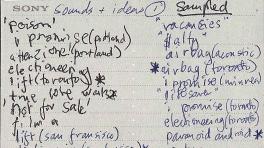 SONY sounds + ideas ① Sampled
'poison'
" promise (portland)
attenzione (portland)
electioneering
lift (toronto) *
true love waits *
not for sale'
lift (san fransisco)
"vacancies"
"
airbag (acoustic)
* airbag (toronto)
I promise (
'lifesaver'
promise (toronto)
electioneering (toronto)
paranoid android *